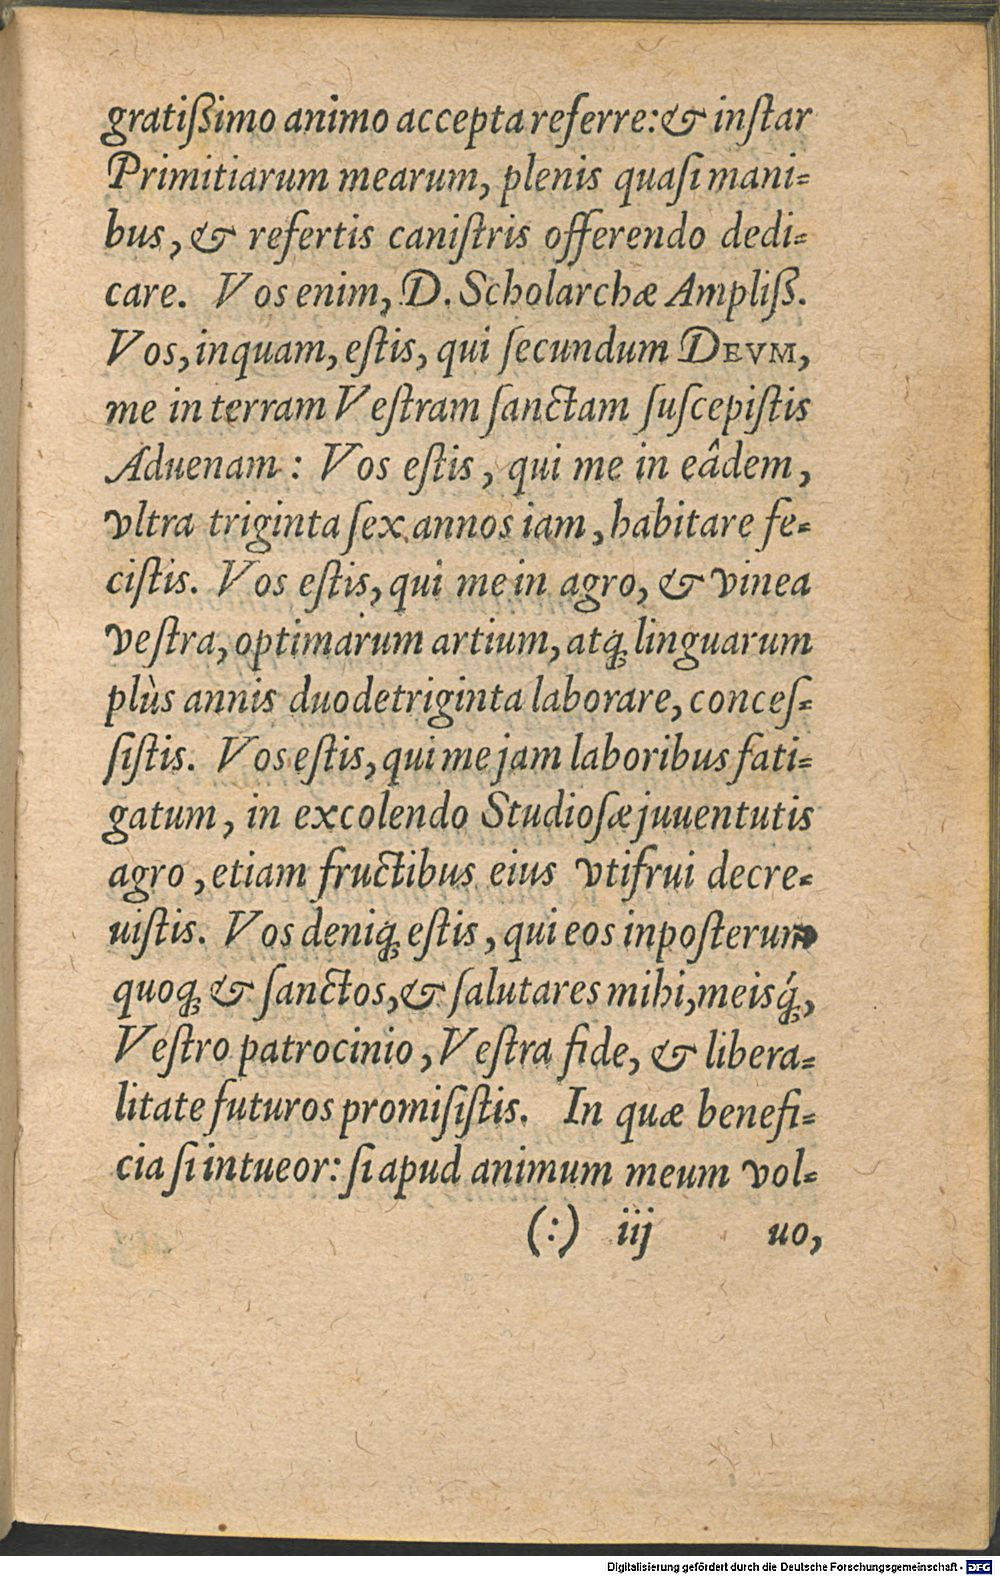 gratiſsimo animo accepta referre: & inſtar
Primitiarum mearum, plenis quaſi mani-
bus, & refertis caniſtris offerendo dedi-
care. Vos enim, D. Scholarchæ Ampliſs.
Vos, inquam, eſtis, qui ſecundum DEVM,
me in terram Veſtram ſanctam ſuſcepiſtis
Aduenam: Vos eſtis, qui me in eâdem,
vltra triginta ſex annos iam, habitare fe-
ciſtis. Vos eſtis, qui me in agro, & vinea
veſtra, optimarum artium, atq́ꝫ linguarum
plùs annis duodetriginta laborare, conceſ-
ſiſtis. Vos eſtis, qui me jam laboribus fati-
gatum, in excolendo Studioſæ juuentutis
agro, etiam fructibus eius vtifrui decre-
uiſtis. Vos deniqꝫ eſtis, qui eos inpoſterum
quoqꝫ & ſanctos, & ſalutares mihi, meisq́ꝫ,
Veſtro patrocinio, Veſtra fide, & libera-
litate futuros promiſiſtis. In quæ benefi-
cia ſi intueor: ſi apud animum meum vol-
(:) iij uo,
Digitalisierung gefördert durch die Deutsche Forschungsgemeinschaft - DFG